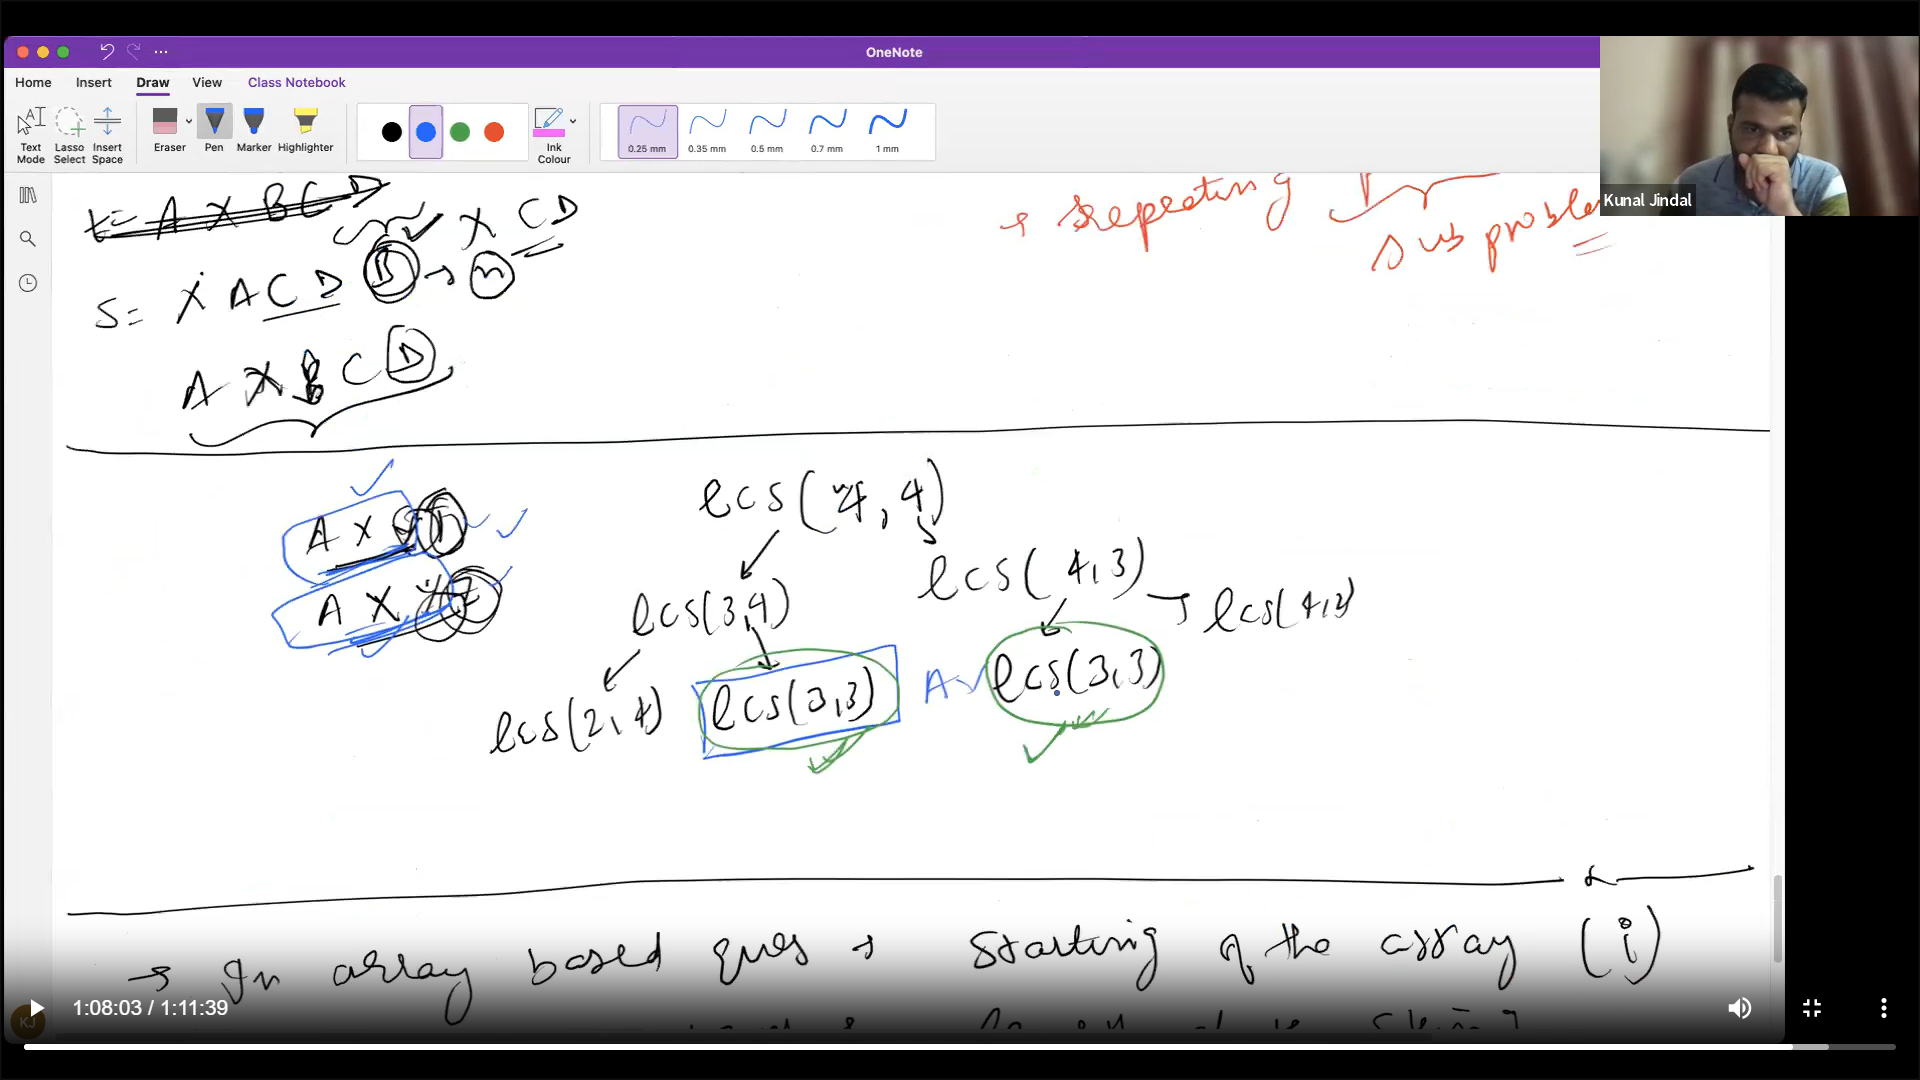 OneNote
Home Insert Draw View Class Notebook
Text Mode
Lasso Select
Insert Space
Eraser
Pen
Marker
Highlighter
Ink Colour
0.25 mm
0.35 mm
0.5 mm
0.7 mm
1 mm
Kunal Jindal
t= A X B C D
X CD
→ repeating
sub proble
S= X A C D B → n
A X B C D
A X
A X Y Z
lcs(4,4)
lcs(3,4)
lcs(4,3)
lcs(2,4)
lcs(3,3)
A
lcs(3,3)
→ In array based ques → Starting of the array (i)
1:08:03 / 1:11:39
KJ